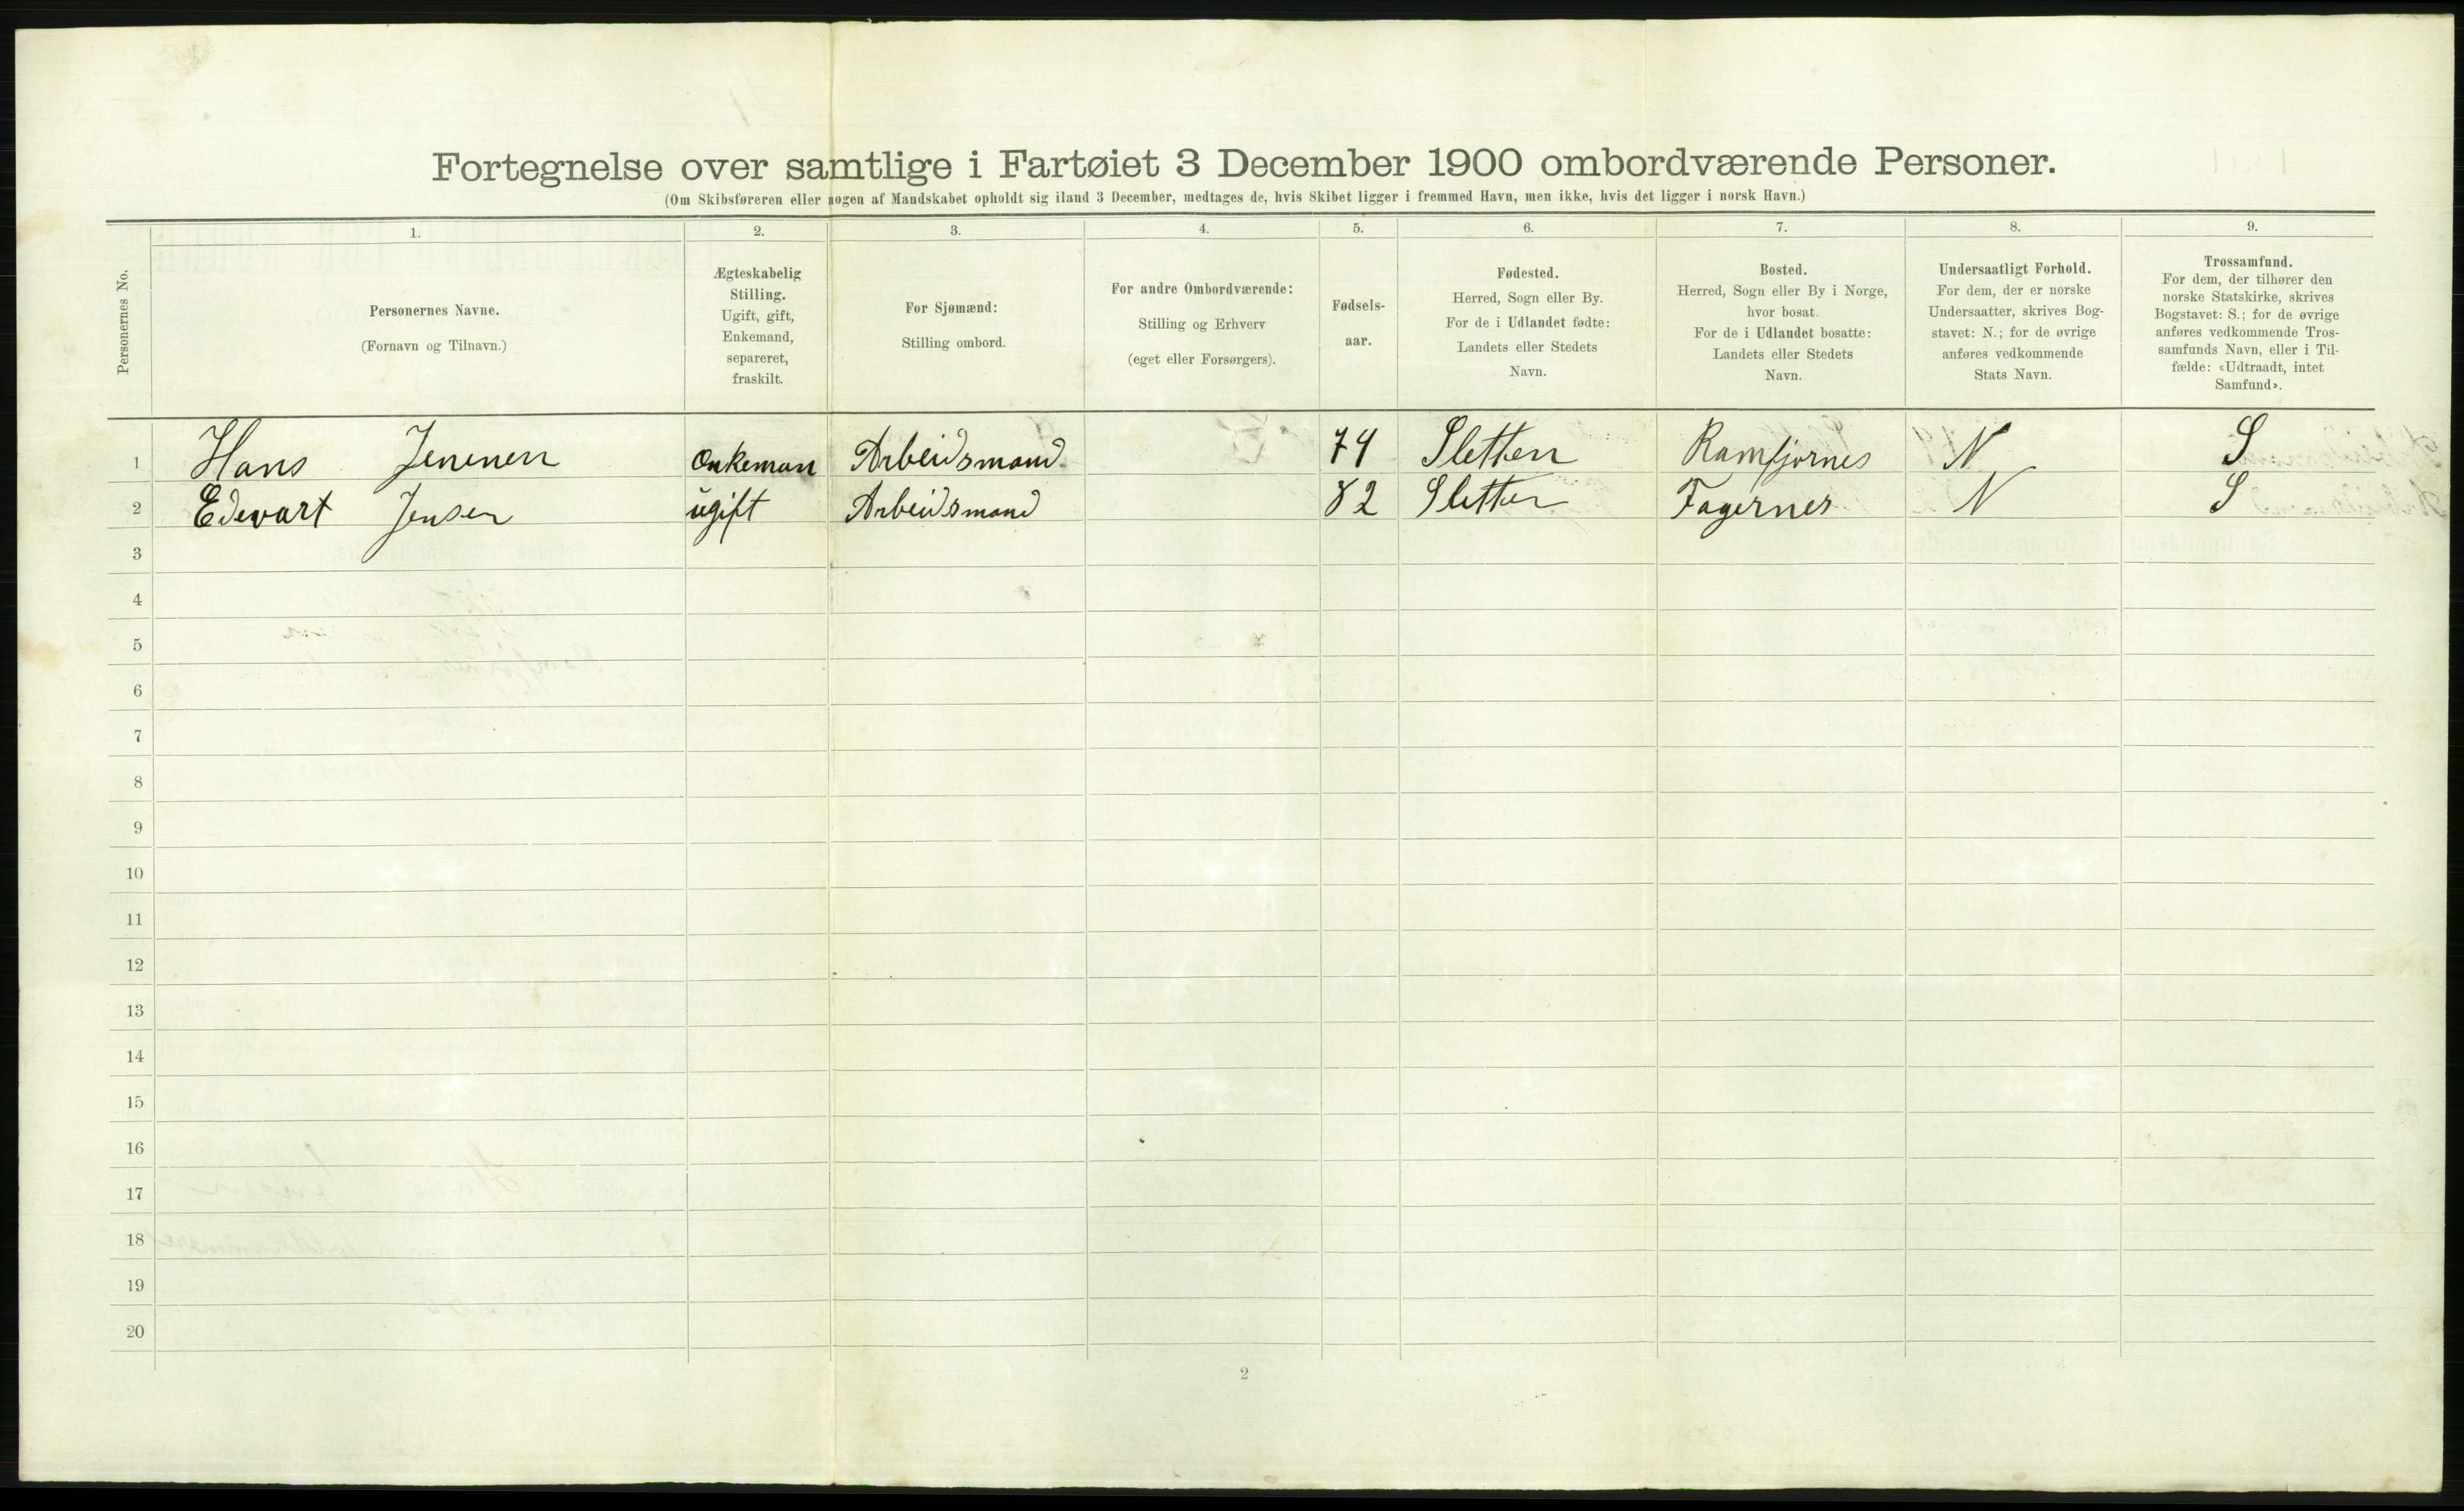 Fortegnelse over samtlige i Fartøiet 3 December 1900 ombordværende Personer.
(Om Skibsføreren eller nogen af Mandskabet opholdt sig iland 3 December, medtages de, hvis Skibet ligger i fremmed Havn, men ikke, hvis det ligger i norsk Havn.)
Personernes No.
1.
Personernes Navne.
(Fornavn og Tilnavn.)
2.
Ægteskabelig
Stilling.
Ugift, gift,
Enkemand,
separeret,
fraskilt.
3.
For Sjømænd:
Stilling ombord.
4.
For andre Ombordværende:
Stilling og Erhverv
(eget eller Forsørgers).
5.
Fødsels-
aar.
6.
Fødested.
Herred, Sogn eller By.
For de i Udlandet fødte:
Landets eller Stedets
Navn.
7.
Bosted.
Herred, Sogn eller By i Norge,
hvor bosat.
For de i Udlandet bosatte:
Landets eller Stedets
Navn.
8.
Undersaatligt Forhold.
For dem, der er norske
Undersaatter, skrives Bog-
stavet: N.; for de øvrige
anføres vedkommende
Stats Navn.
9.
Trossamfund.
For dem, der tilhører den
norske Statskirke, skrives
Bogstavet: S.; for de øvrige
anføres vedkommende Tros-
samfunds Navn, eller i Til-
fælde: «Udtraadt, intet
Samfund».
1 Hans Jenenen Onkeman Arbeidsmand 74 Sletten Ramfjornes N S
2 Edevart Jensen ugift Arbeidsmand 82 Sletten Fagernes N S
3
4
5
6
7
8
9
10
11
12
13
14
15
16
17
18
19
20
2